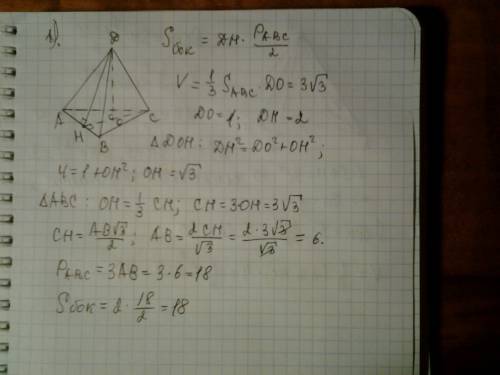 1).
D
A
B
C
H
O
Sбок = DH · PABC/2
V = 1/3 SABC · DO = 3√3
DO = 1; DH = 2
△DOH: DH² = DO² + OH²;
4 = 1 + OH²; OH = √3
△ABC: OH = 1/3 CH; CH = 3OH = 3√3
CH = AB√3/2; AB = 2CH/√3 = 2·3√3/√3 = 6.
PABC = 3AB = 3·6 = 18
Sбок = 2 · 18/2 = 18